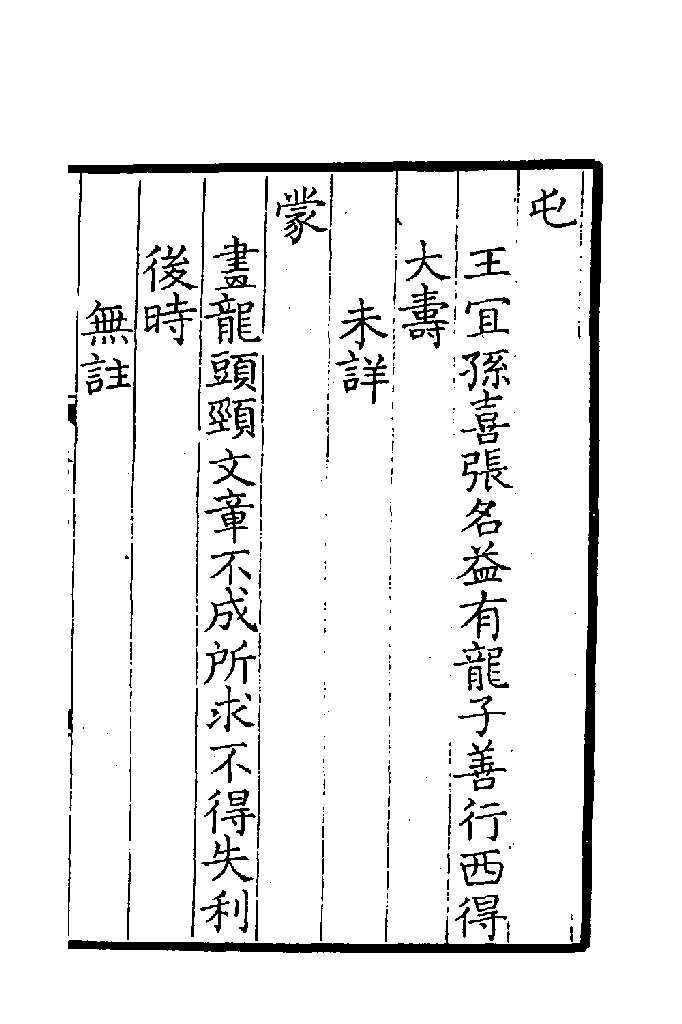 屯
王宜孫喜張名益有龍子善行西得
大壽
未詳
蒙
畫龍頭頸文章不成所求不得失利
後時
無註